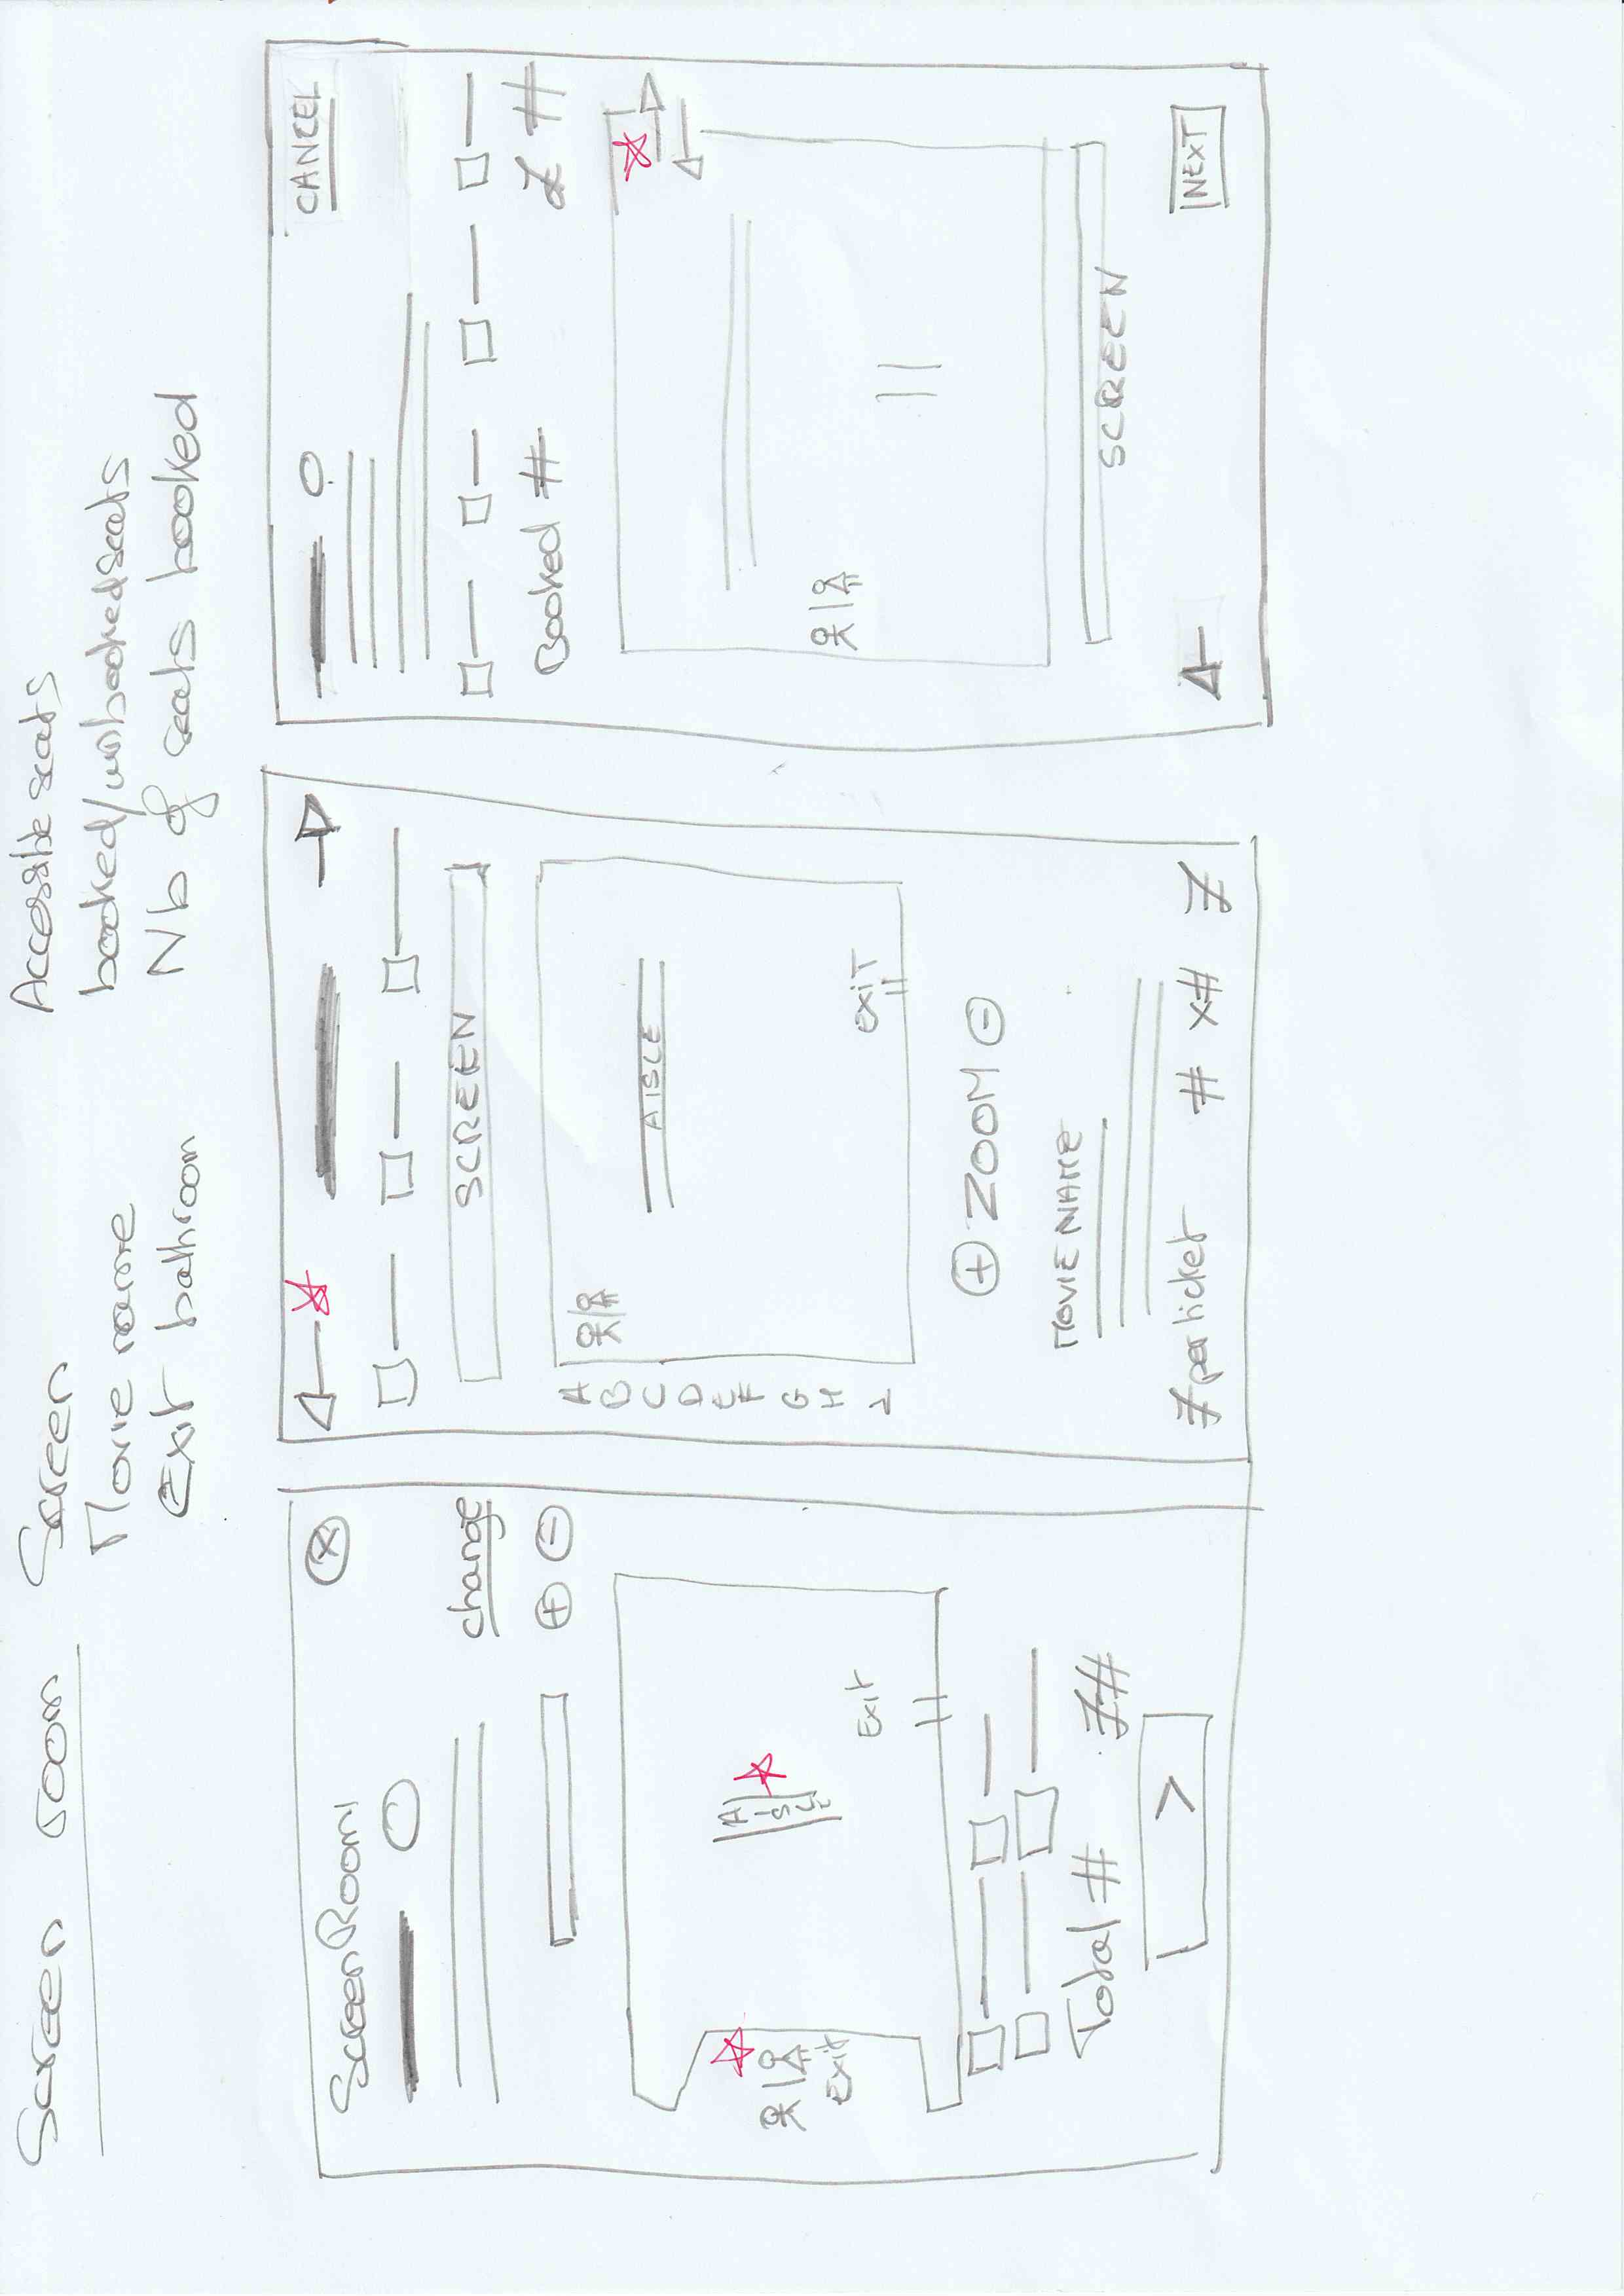 Screen room
Screen
Movie name
Exit bathroom
Accessible seats
booked/unbooked seats
Nb of seats booked
Screen Room 1
X
change
+ -
AISLE
Exit
Exit
Total # #
>
SCREEN
A
B
C
D
E
F
G
H
AISLE
exiT
+ ZOOM -
MOVIE NAME
per ticket # x#
CANCEL
Booked # #
SCREEN
NEXT